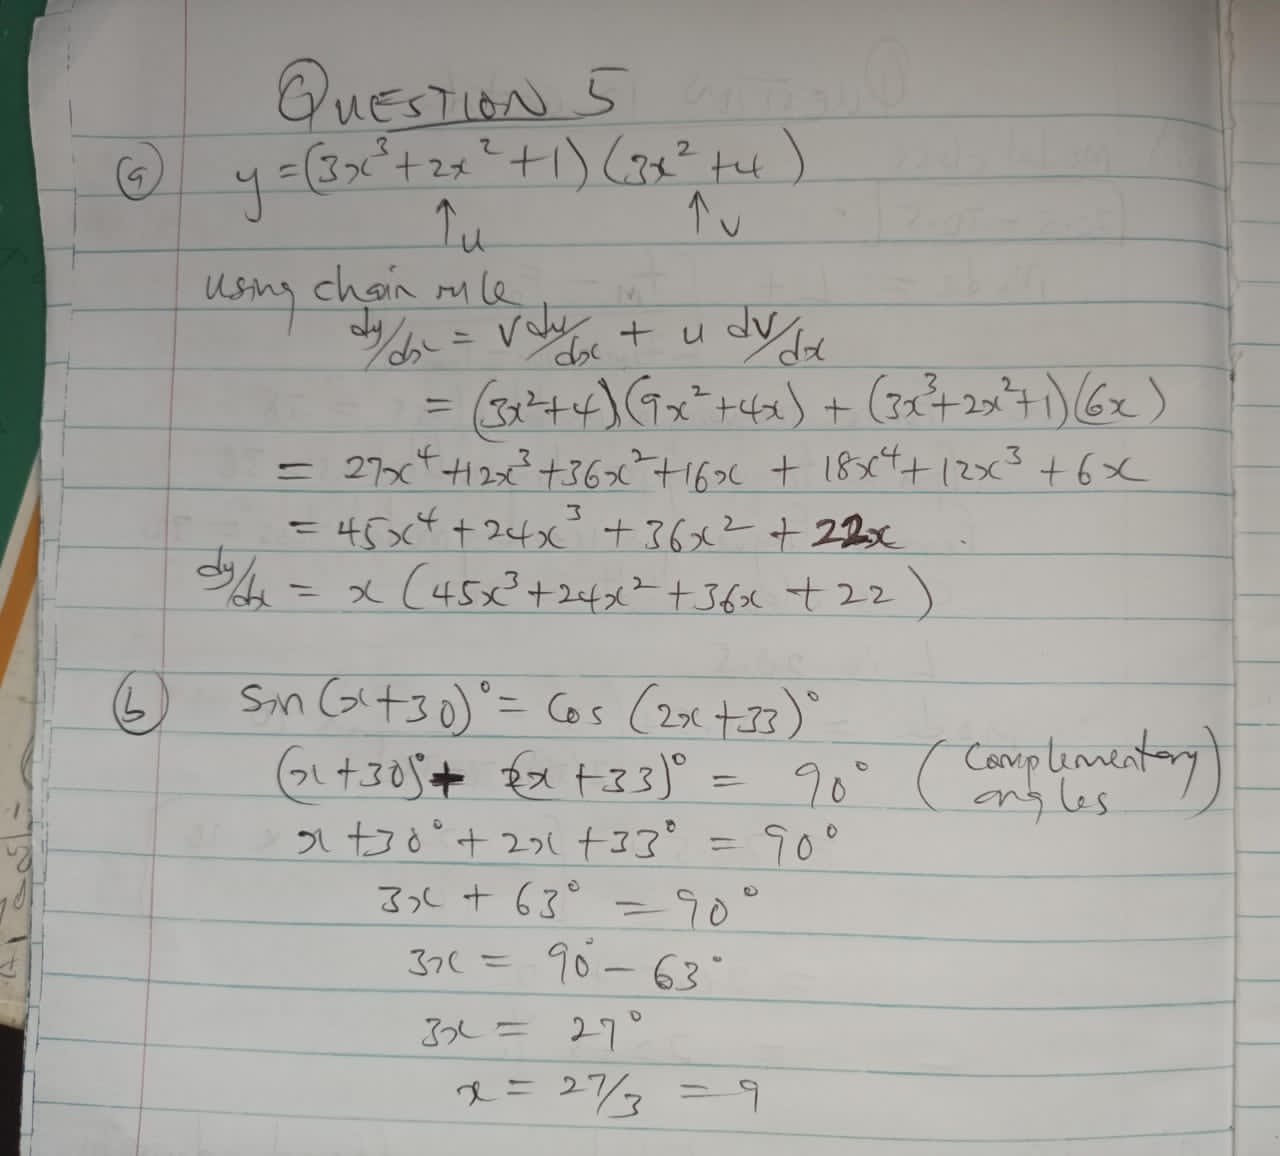 QUESTION 5
(a) y = (3x³ + 2x² + 1) (3x² + 4)
↑u ↑v
using chain rule
dy/dx = v dy/dx + u dv/dx
= (3x² + 4)(9x² + 4x) + (3x³ + 2x² + 1)(6x)
= 27x⁴ + 12x³ + 36x² + 16x + 18x⁴ + 12x³ + 6x
= 45x⁴ + 24x³ + 36x² + 22x
dy/dx = x (45x³ + 24x² + 36x + 22)
(b) Sin (x+30)° = Cos (2x + 33)°
(x + 30)° + (2x + 33)° = 90° (Complementary angles)
x + 30° + 2x + 33° = 90°
3x + 63° = 90°
3x = 90° - 63°
3x = 27°
x = 27/3 = 9